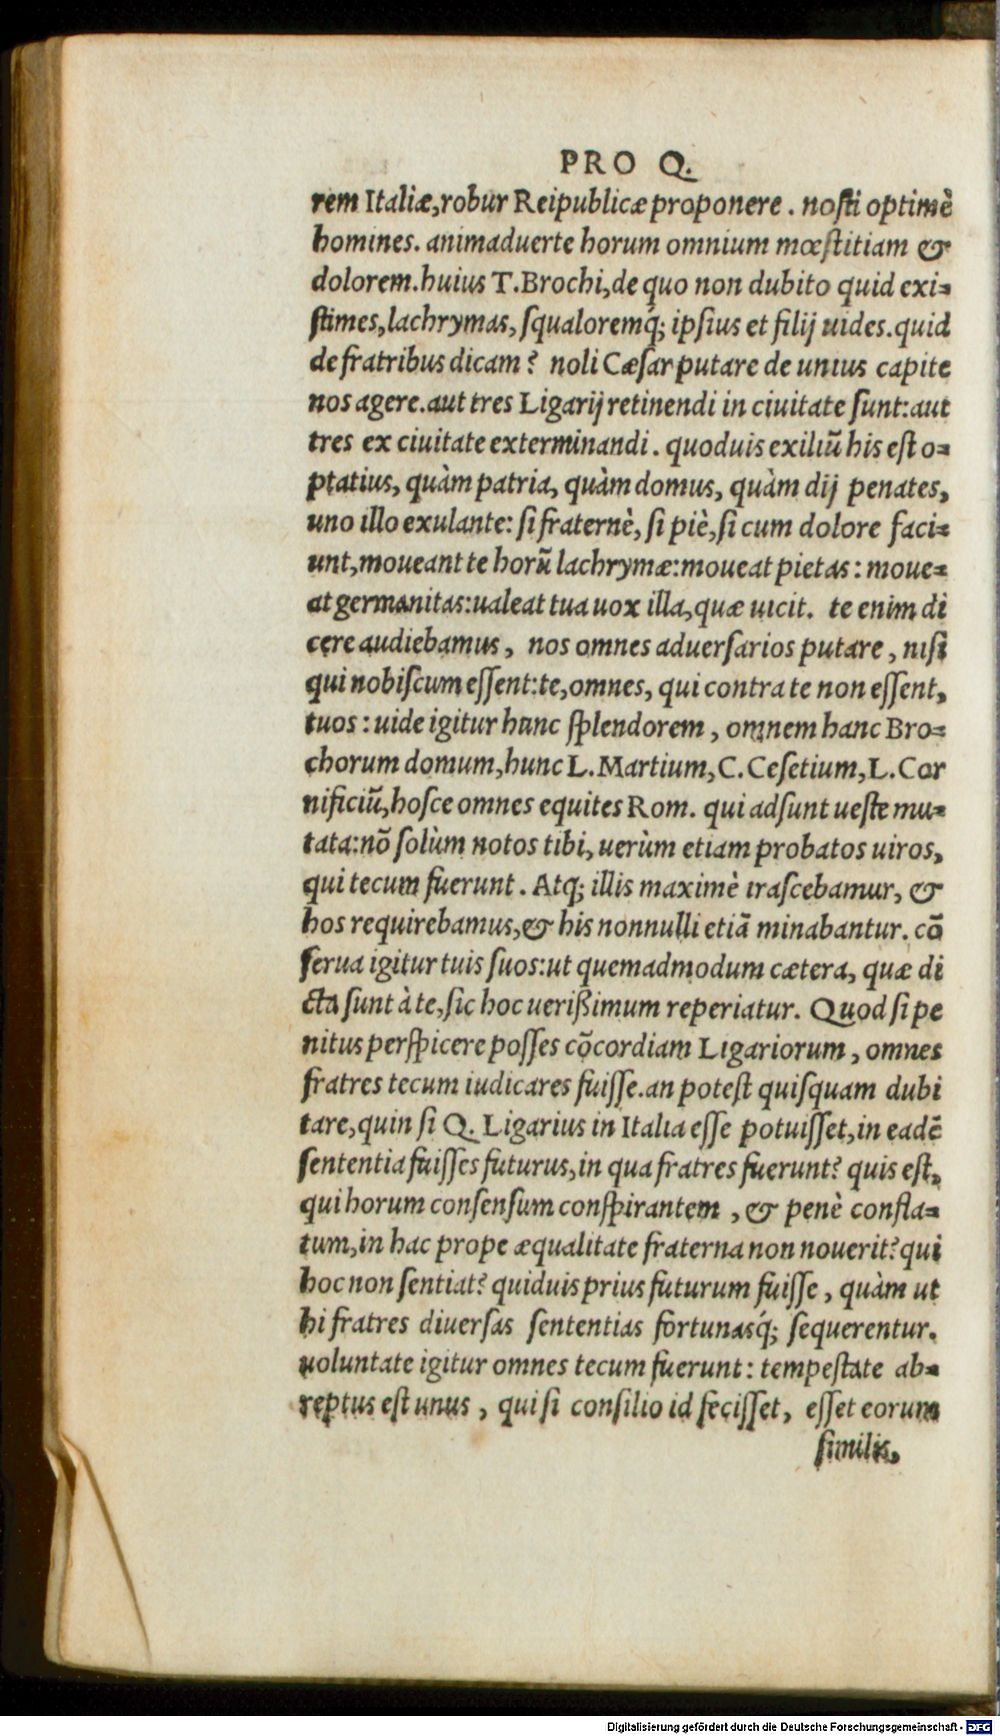 PRO Q.
rem Italiæ, robur Reipublicæ proponere . nosti optimè
homines. animaduerte horum omnium mœstitiam &
dolorem. huius T. Brochi, de quo non dubito quid exi-
stimes, lachrymas, squaloremq́; ipsius et filij uides. quid
de fratribus dicam ? noli Cæsar putare de unius capite
nos agere. aut tres Ligarij retinendi in ciuitate sunt: aut
tres ex ciuitate exterminandi . quoduis exiliũ his est o-
ptatius, quàm patria, quàm domus, quàm dij penates,
uno illo exulante: si fraternè, si piè, si cum dolore faci-
unt, moueant te horũ lachrymæ: moueat pietas : moue-
at germanitas: ualeat tua uox illa, quæ uicit. te enim di
cere audiebamus , nos omnes aduersarios putare , nisi
qui nobiscum essent: te, omnes, qui contra te non essent,
tuos : uide igitur hunc splendorem , omnem hanc Bro-
chorum domum, hunc L. Martium, C. Cesetium, L. Cor
nificiũ, hosce omnes equites Rom. qui adsunt ueste mu-
tata: nõ solùm notos tibi, uerùm etiam probatos uiros,
qui tecum fuerunt . Atq; illis maximè irascebamur, &
hos requirebamus, & his nonnulli etiã minabantur. cõ
serua igitur tuis suos: ut quemadmodum cætera, quæ di
cta sunt à te, sic hoc uerißimum reperiatur. Quod si pe
nitus perspicere posses cõcordiam Ligariorum , omnes
fratres tecum iudicares fuisse. an potest quisquam dubi
tare, quin si Q. Ligarius in Italia esse potuisset, in eadẽ
sententia fuisses futurus, in qua fratres fuerunt? quis est,
qui horum consensum conspirantem , & penè confla-
tum, in hac prope æqualitate fraterna non nouerit? qui
hoc non sentiat? quiduis prius futurum fuisse , quàm ut
hi fratres diuersas sententias fortunasq́; sequerentur.
uoluntate igitur omnes tecum fuerunt : tempestate ab-
reptus est unus , qui si consilio id fecisset, esset eorum
similis,
Digitalisierung gefördert durch die Deutsche Forschungsgemeinschaft - DFG